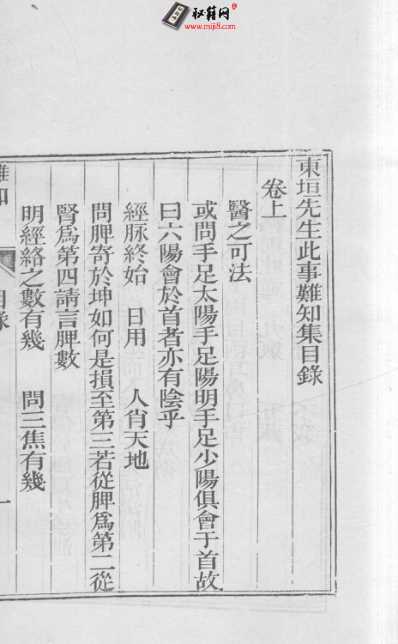 秘籍网
www.miji8.com
東垣先生此事難知集目錄
卷上
醫之可法
或問手足太陽手足陽明手足少陽俱會于首故
曰六陽會於首者亦有陰乎
經脉終始 日用 人肖天地
問脾寄於坤如何是損至第三若從脾爲第二從
腎爲第四請言脾數
明經絡之數有幾 問三焦有幾
難知
目錄
一